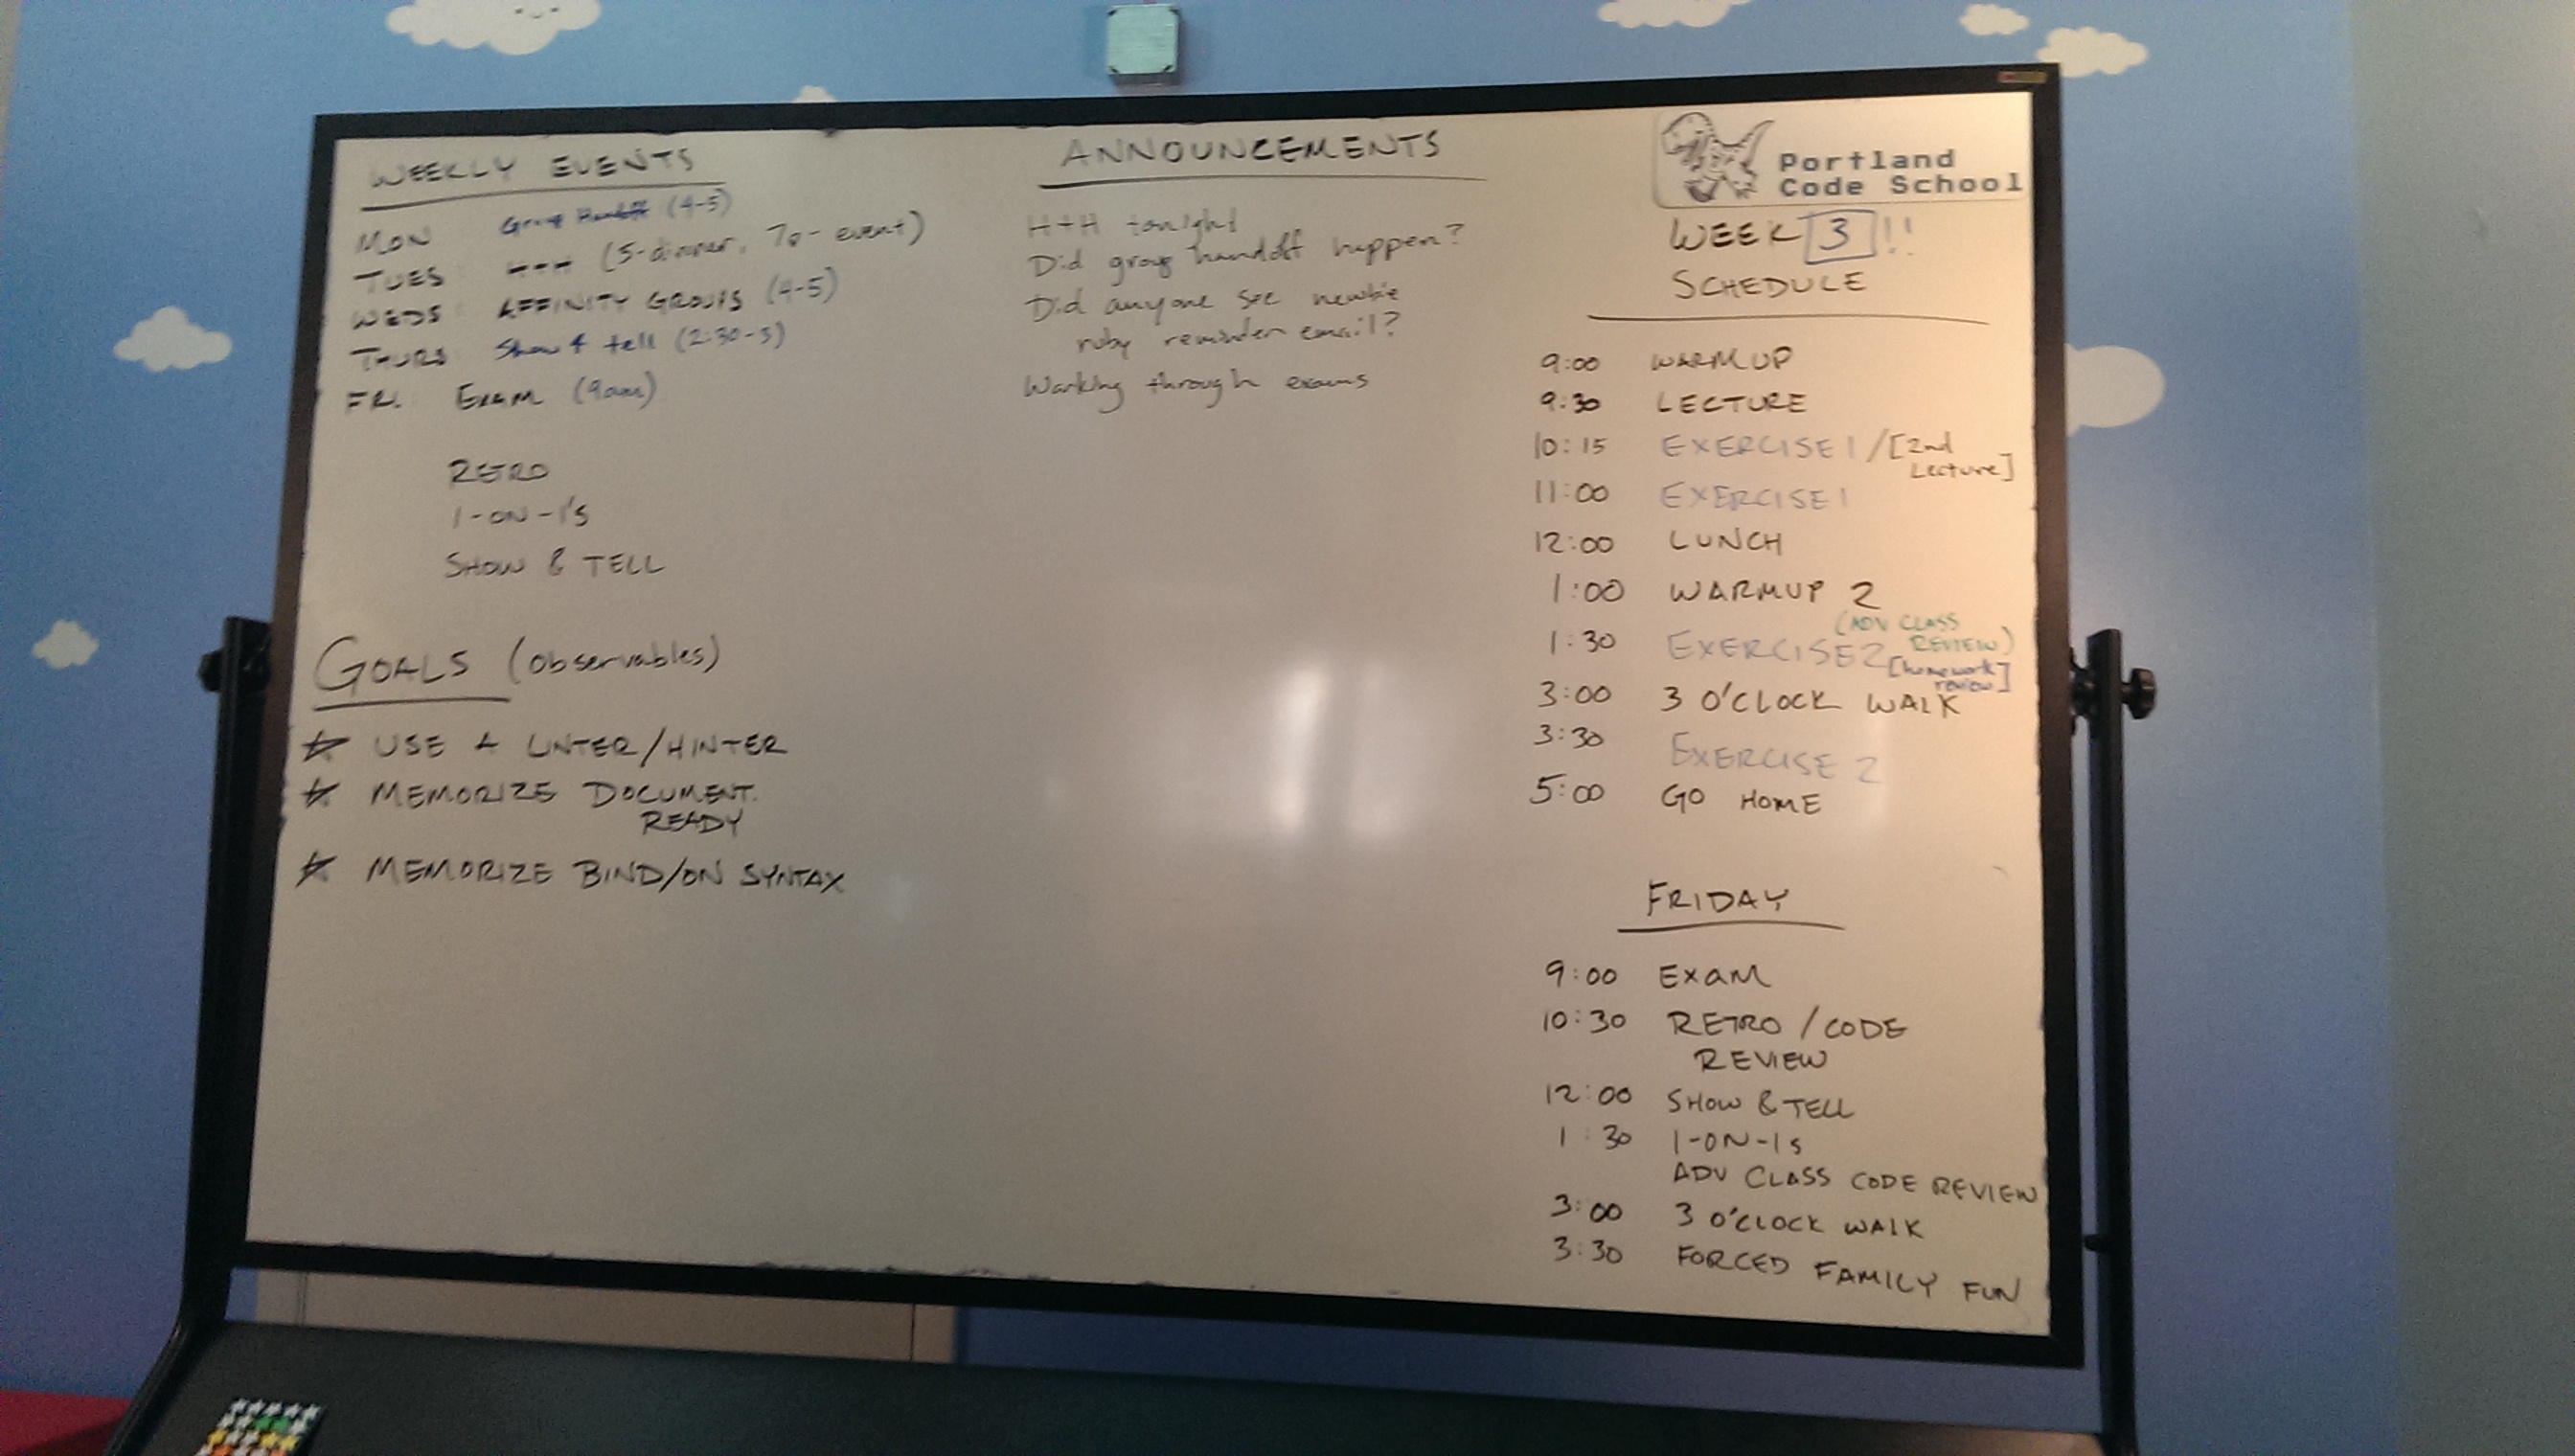 WEEKLY EVENTS
MON Group Handoff (4-5)
TUES H+H (5-dinner, 7p- event)
WEDS AFFINITY GROUPS (4-5)
THURS Show & tell (2:30-3)
FRI. EXAM (9am)
RETRO
1-ON-1'S
SHOW & TELL
GOALS (observables)
USE A LINTER/HINTER
MEMORIZE DOCUMENT.
READY
MEMORIZE BIND/ON SYNTAX
ANNOUNCEMENTS
H+H tonight
Did group handoff happen?
Did anyone see newbie
ruby reminder email?
Working through exams
Portland
Code School
WEEK 3!!
SCHEDULE
9:00 WARMUP
9:30 LECTURE
10:15 EXERCISE 1 / [2nd
Lecture]
11:00 EXERCISE 1
12:00 LUNCH
1:00 WARMUP 2
(ADV CLASS
REVIEW)
1:30 EXERCISE 2 [homework
review]
3:00 3 O'CLOCK WALK
3:30 EXERCISE 2
5:00 GO HOME
FRIDAY
9:00 EXAM
10:30 RETRO / CODE
REVIEW
12:00 SHOW & TELL
1:30 1-ON-1s
ADV CLASS CODE REVIEW
3:00 3 O'CLOCK WALK
3:30 FORCED FAMILY FUN